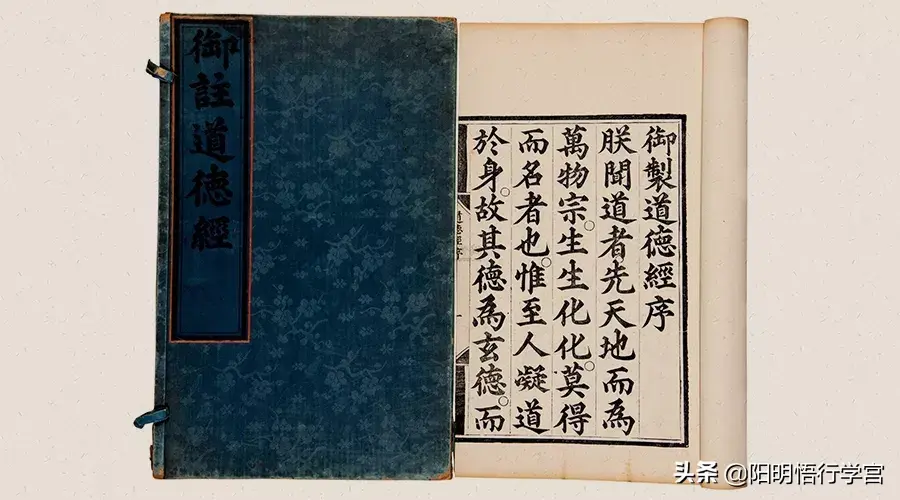 御註道德經
御製道德經序
朕聞道者先天地而為
萬物宗。生生化化。莫得
而名者也。惟至人凝道
於身。故其德為玄德。而
道德經序
一
头条 @阳明悟行学宫